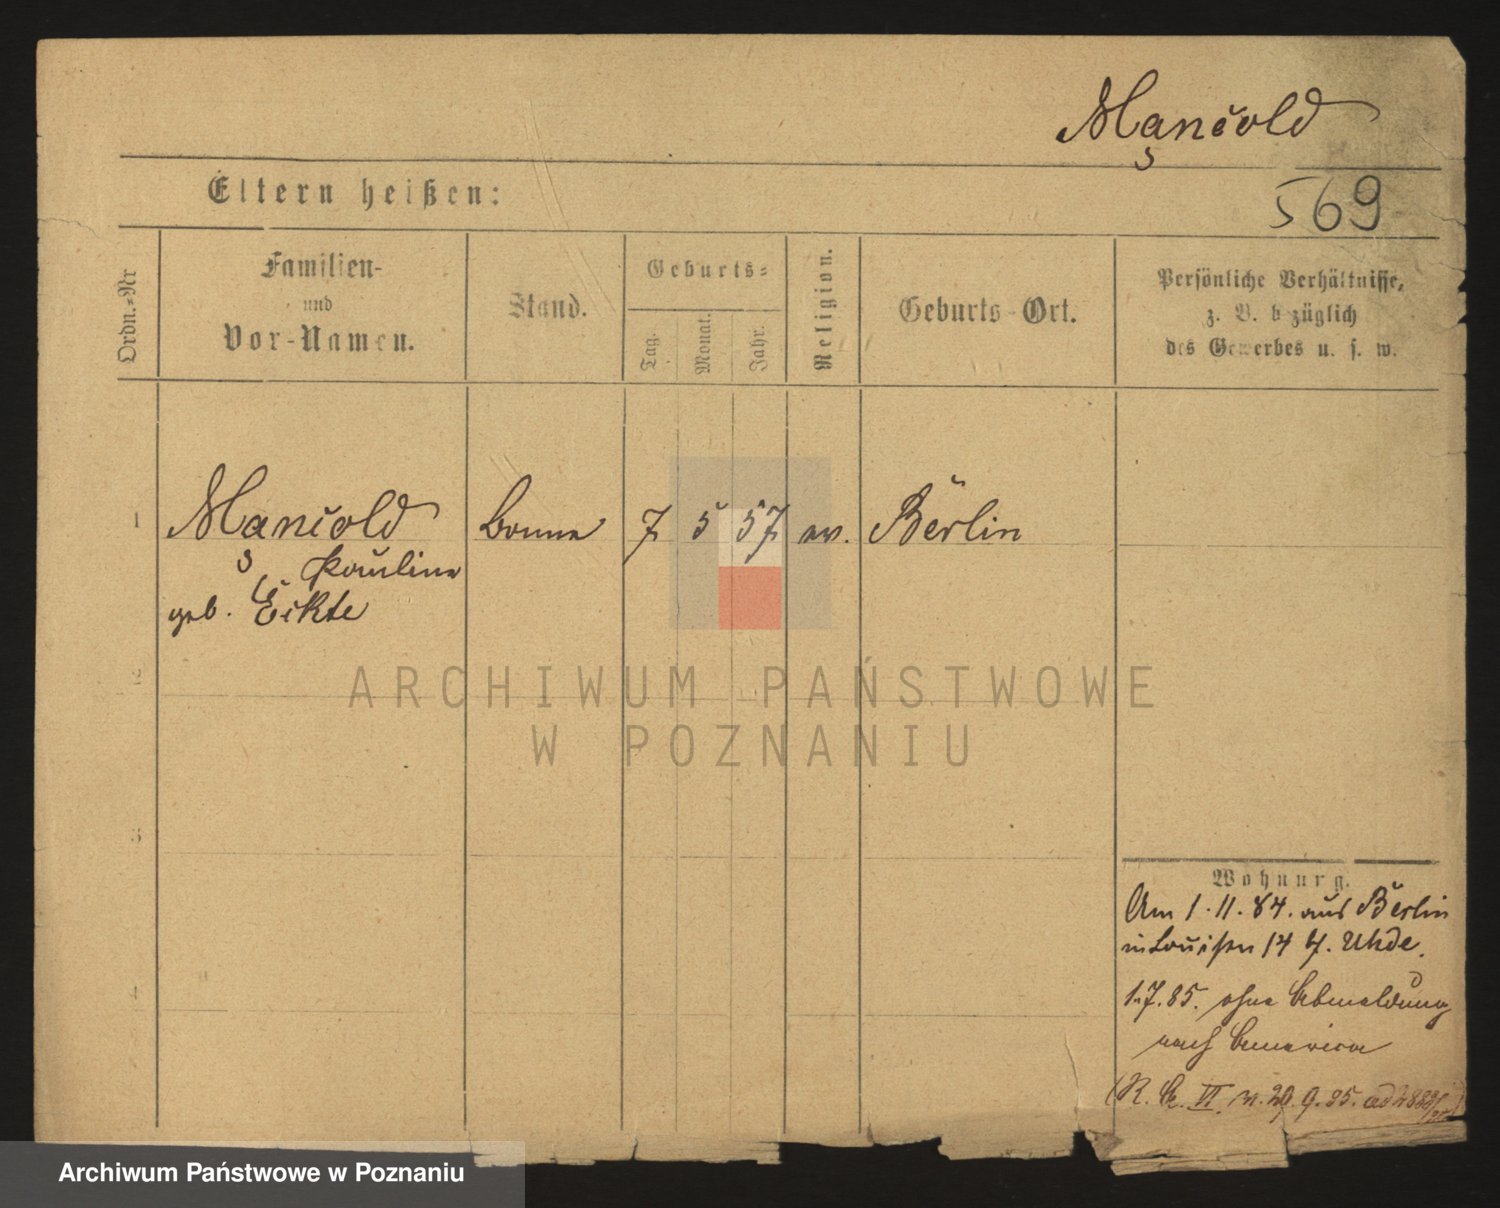 Mancold
3
569
Eltern heißen:
Ordn.=Nr
Familien-
und
Vor-Namen.
Stand.
Geburts=
Tag.
Monat.
Jahr.
Religion.
Geburts-Ort.
Persönliche Verhältnisse,
z. B. bezüglich
des Gewerbes u. s. w.
1
Mancold
3 Pauline
geb. Eikte
Bonne
7
5
57
ev.
Berlin
2
3
4
ARCHIWUM PAŃSTWOWE
W POZNANIU
Wohnung.
Am 1.11.84. aus Berlin
in Louisen 14 b. Uhde.
1.7.85. ohne Abmeldung
nach America
(R. B. VI v. 29.9.85. ad
Archiwum Państwowe w Poznaniu